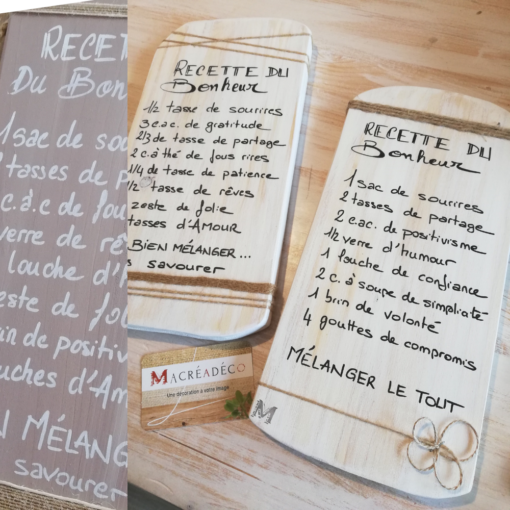 RECET
Du Bon
1 sac de sou
tasses de p
c.à.c de fou
verre de rê
louche d'h
de fo
de positiv
ouches d'Am
MÉLANG
savourer
RECETTE DU
Bonheur
1/2 tasse de sourires
3 c.a.c. de gratitude
2/3 de tasse de partage
2 c.à thé de fous rires
1/4 de tasse de patience
1/2 tasse de rêves
zeste de folie
tasses d'AMOUR
BIEN MÉLANGER...
savourer
MACRÉADÉCO
Une décoration à votre image
RECETTE DU
Bonheur
1 sac de sourires
2 tasses de partage
2 c.ac. de positivisme
1/2 verre d'humour
1 louche de confiance
2 c. à soupe de simplicité
1 brin de volonté
4 gouttes de compromis
MÉLANGER LE TOUT
M